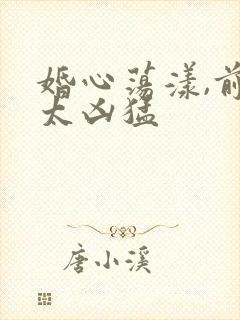 婚心荡漾,前
太凶猛
唐小溪